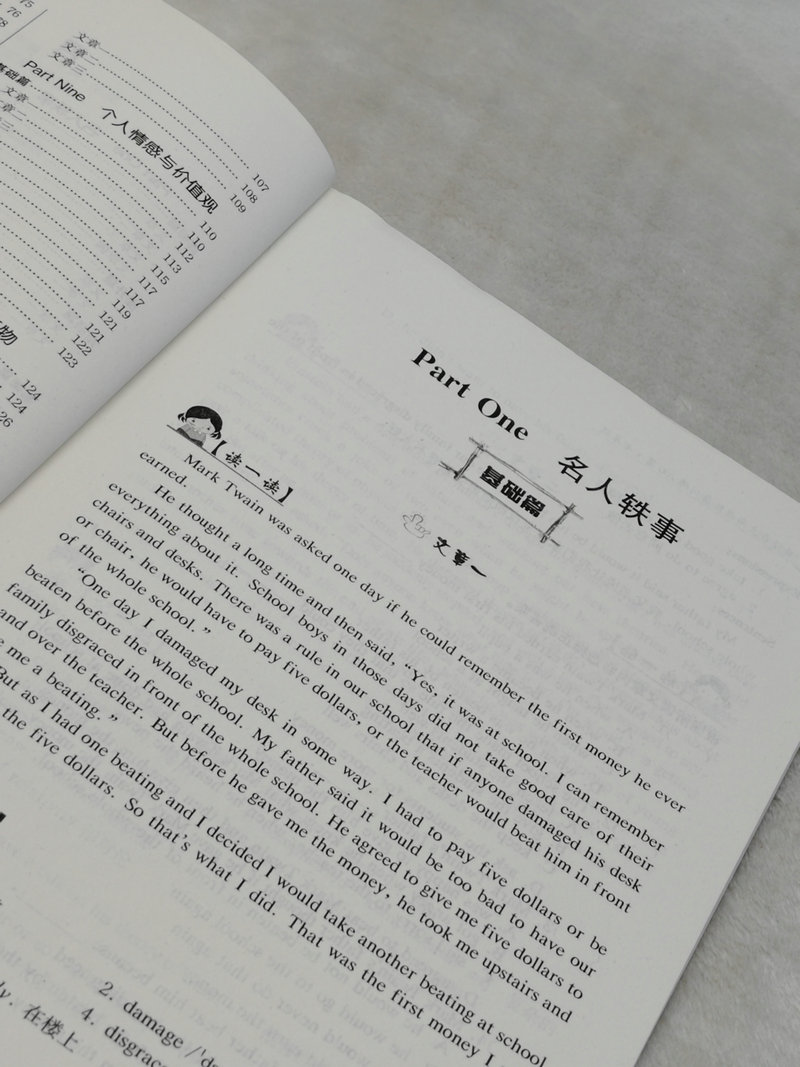 75
76
78
文章一
文章二
文章三
107
108
Part Nine 个人情感与价值观 109
基础篇 110
文章一 110
112
113
115
117
117
119
121
121
122
123
物
124
124
26
Part One 名人轶事
基础篇
文章一
【读一读】
Mark Twain was asked one day if he could remember the first money he ever
earned.
He thought a long time and then said, “Yes, it was at school. I can remember
everything about it. School boys in those days did not take good care of their
chairs and desks. There was a rule in our school that if anyone damaged his desk
or chair, he would have to pay five dollars, or the teacher would beat him in front
of the whole school.”
“One day I damaged my desk in some way. I had to pay five dollars or be
beaten before the whole school. My father said it would be too bad to have our
family disgraced in front of the whole school. He agreed to give me five dollars to
and over the teacher. But before he gave me the money, he took me upstairs and
me a beating.”
But as I had one beating and I decided I would take another beating at school
the five dollars. So that's what I did. That was the first money I
2. damage
4. disgrac
在楼上